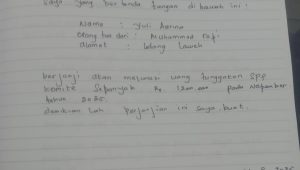 Saya yang bertanda tangan di bawah ini :
Nama : Yuli
Orang tua dari : Muhammad
alamat : Lubang Laweh
berjanji akan melunasi uang tunggakan SPP
Komite Sebanyak Rp. 1.200.000 pada November
tahun 2025.
demikian lah perjanjian ini saya buat.